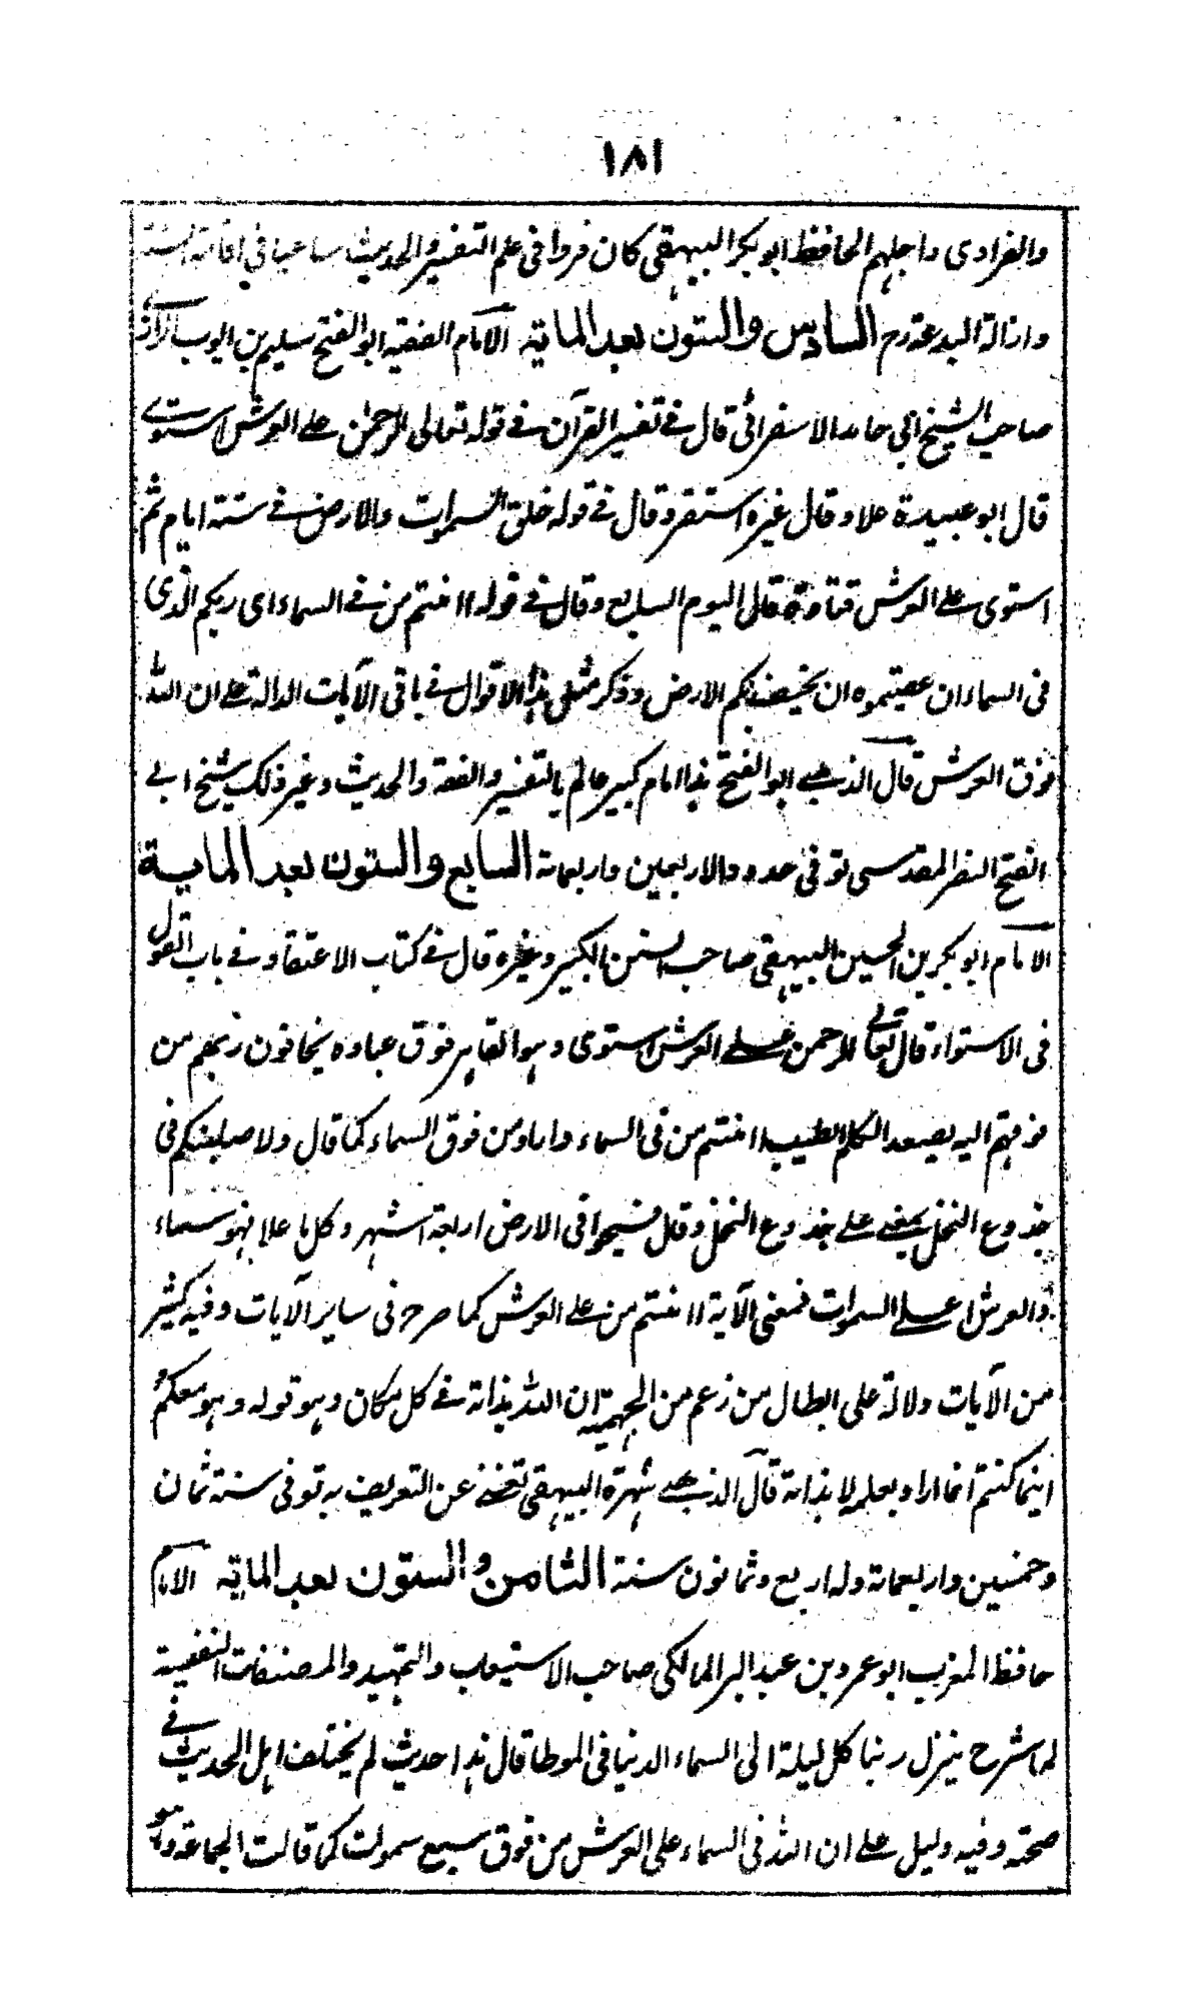 ١٨١
والفرادى واجلهم الحافظ ابو بكر البيهقى كان فردا فى علم التفسير والحديث ساعيا في اقامة السنة
وازالة البدعة رح السادس والستون بعد الماية الامام الفقيه ابو الفتح سليم بن ايوب الرازى
صاحب الشيخ ابي حامد الاسفرائى قال فى تفسير القرآن فى قوله تعالى الرحمن على العرش استوى
قال ابو عبيدة علا وقال غيره استقر وقال فى قوله خلق السموات والارض فى ستة ايام ثم
استوى على العرش قتادة قال اليوم السابع وقال فى قوله أامنتم من فى السماء اى ربكم الذى
فى السماء ان عصيتموه ان يخسف بكم الارض وذكر مثل هذا الاقوال فى باقى الآيات الدالة على ان الله
فوق العرش قال الذهبى ابو الفتح هذا امام كبير عالم بالتفسير والفقة والحديث وغير ذلك شيخ ابى
الفتح النضر المقدسى توفى حدود الاربعين واربعماة السابع والستون بعد الماية
الامام ابو بكر بن الحسين البيهقى صاحب السنن الكبير وغيره قال فى كتاب الاعتقاد فى باب القول
فى الاستواء قال تعالى الرحمن على العرش استوى وهو القاهر فوق عباده يخافون ربهم من
فوقهم اليه يصعد الكلم الطيب أامنتم من فى السماء واراد من فوق السماء كما قال ولاصلبنكم فى
جذوع النخل يعنى على جذوع النخل وقال فسيحوا فى الارض اربعة اشهر وكل ما علا فهو سماء
والعرش اعلى السموات فمعنى الآية أامنتم من على العرش كما صرح فى ساير الآيات وفيه كثير
من الآيات دلالة على ابطال من زعم من الجهمية ان الله بذاته فى كل مكان وهو قوله وهو معكم
اينما كنتم انما اراد بعلمه لا بذاته قال الذهبى شهرة البيهقى تغنى عن التعريف به توفى سنة ثمان
وخمسين واربعماة وله اربع وثمانون سنة الثامن والستون بعد الماية الامام
حافظ المغرب ابو عمرو بن عبد البر المالكى صاحب الاستيعاب والتمهيد والمصنفات النفيسة
له اشرح ينزل ربنا كل ليلة الى السماء الدنيا فى الموطا قال هذا حديث لم يختلف اهل الحديث فى
صحته وفيه دليل على ان الله فى السماء على العرش من فوق سبع سموات كما قالت الجماعة وهو